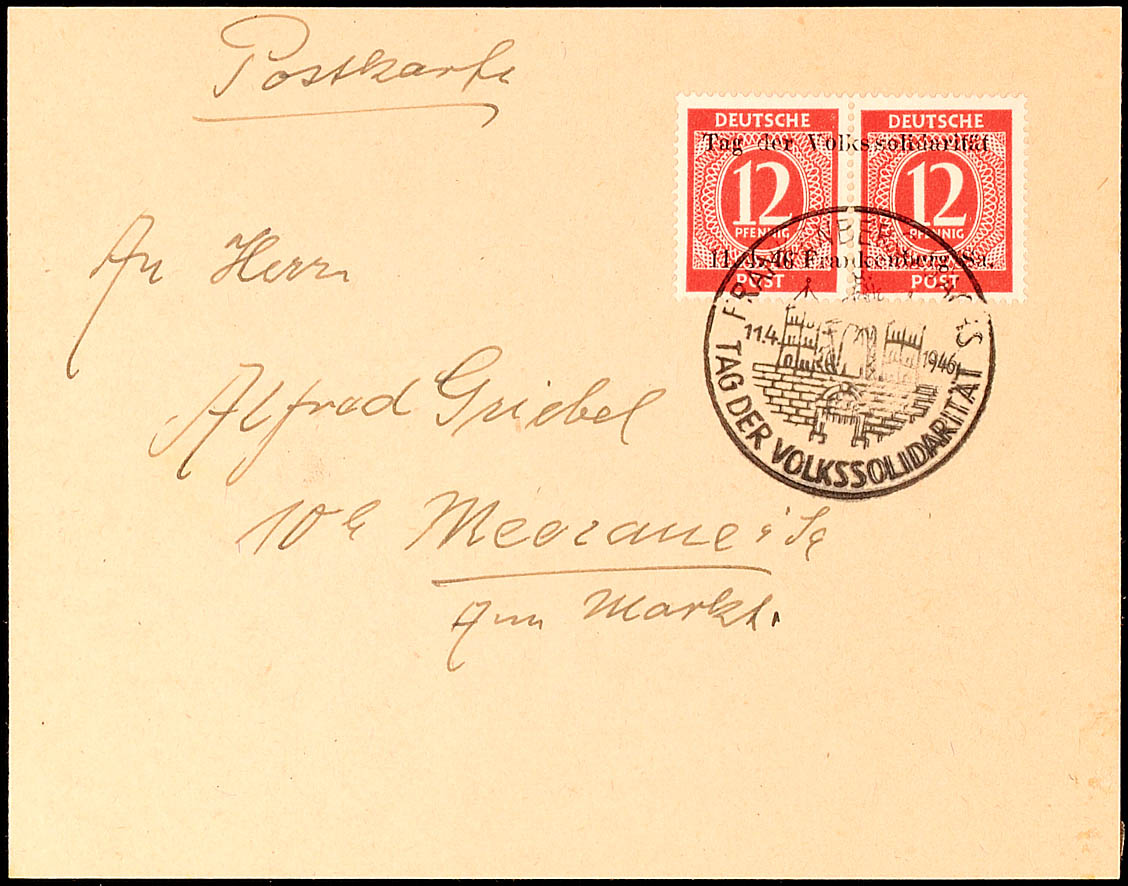 Postkarte
DEUTSCHE DEUTSCHE
Tag der Volkssolidarität
12 12
PFENNIG PFENNIG
11. 4. 46 Frankenberg/Sa.
POST POST
FRANKENBERG SACHS
11.4. 1946
TAG DER VOLKSSOLIDARITÄT
An Herrn
Alfred Griebel
10 Meerane i Sa
Am Markt.